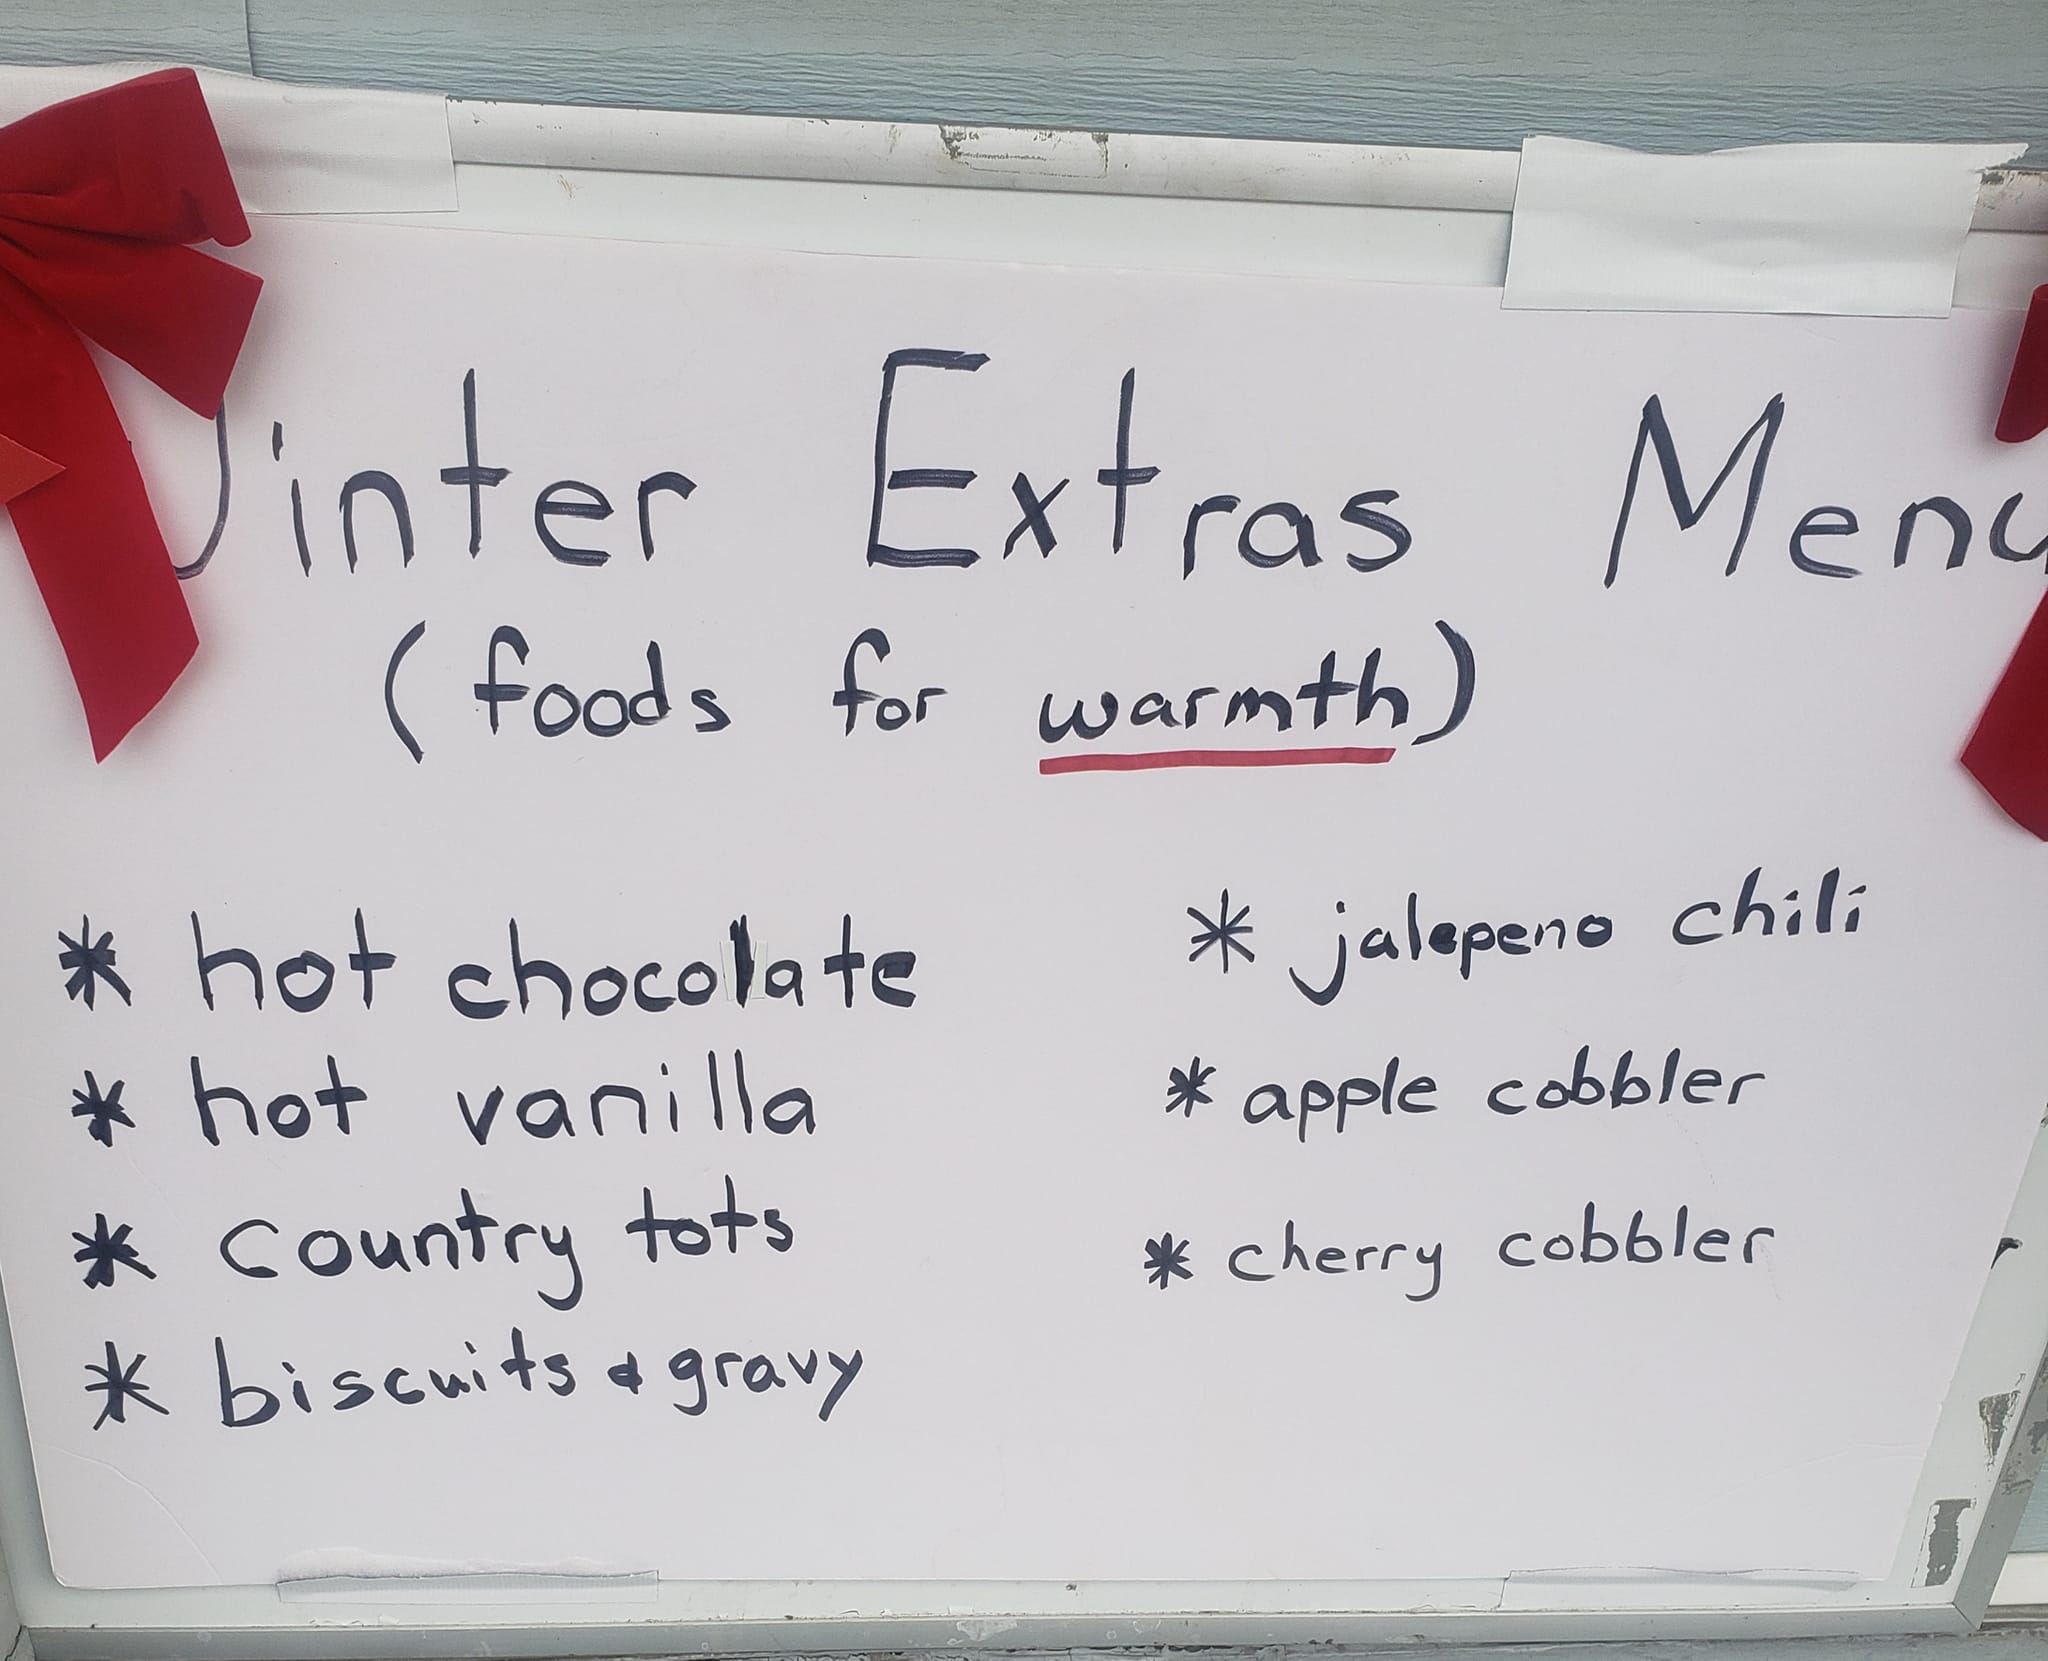 Winter Extras Menu
(foods for warmth)
* hot chocolate
* hot vanilla
* country tots
* biscuits & gravy
* jalepeno chili
* apple cobbler
* cherry cobbler